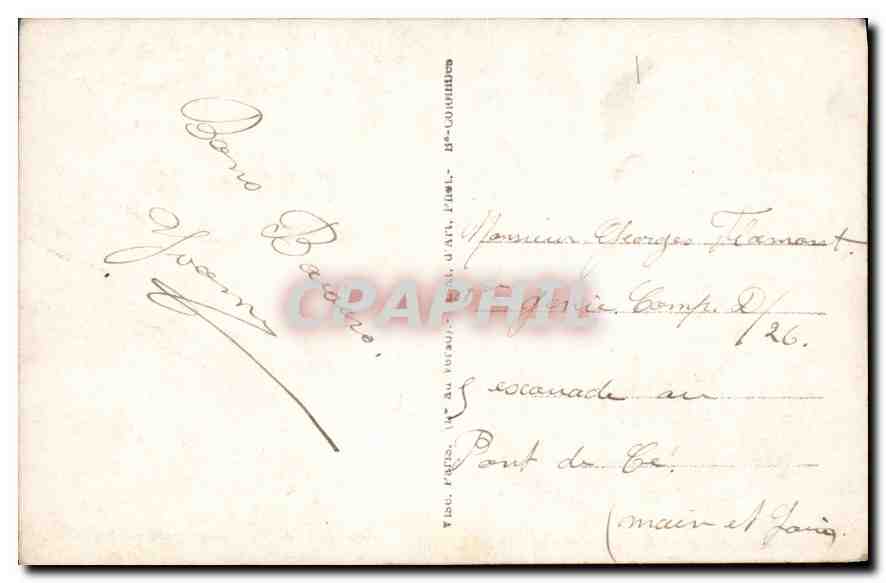 Bons Baisers.
Yvonne
Visé, Paris. (N° au verso).- d'Art, Phot.- Bs-Colombes
Monsieur Georges Flamont.
génie. Comp. D/
/26.
5 escouade au
Pont de Cé.
(main et Loire.
CPAPHIL